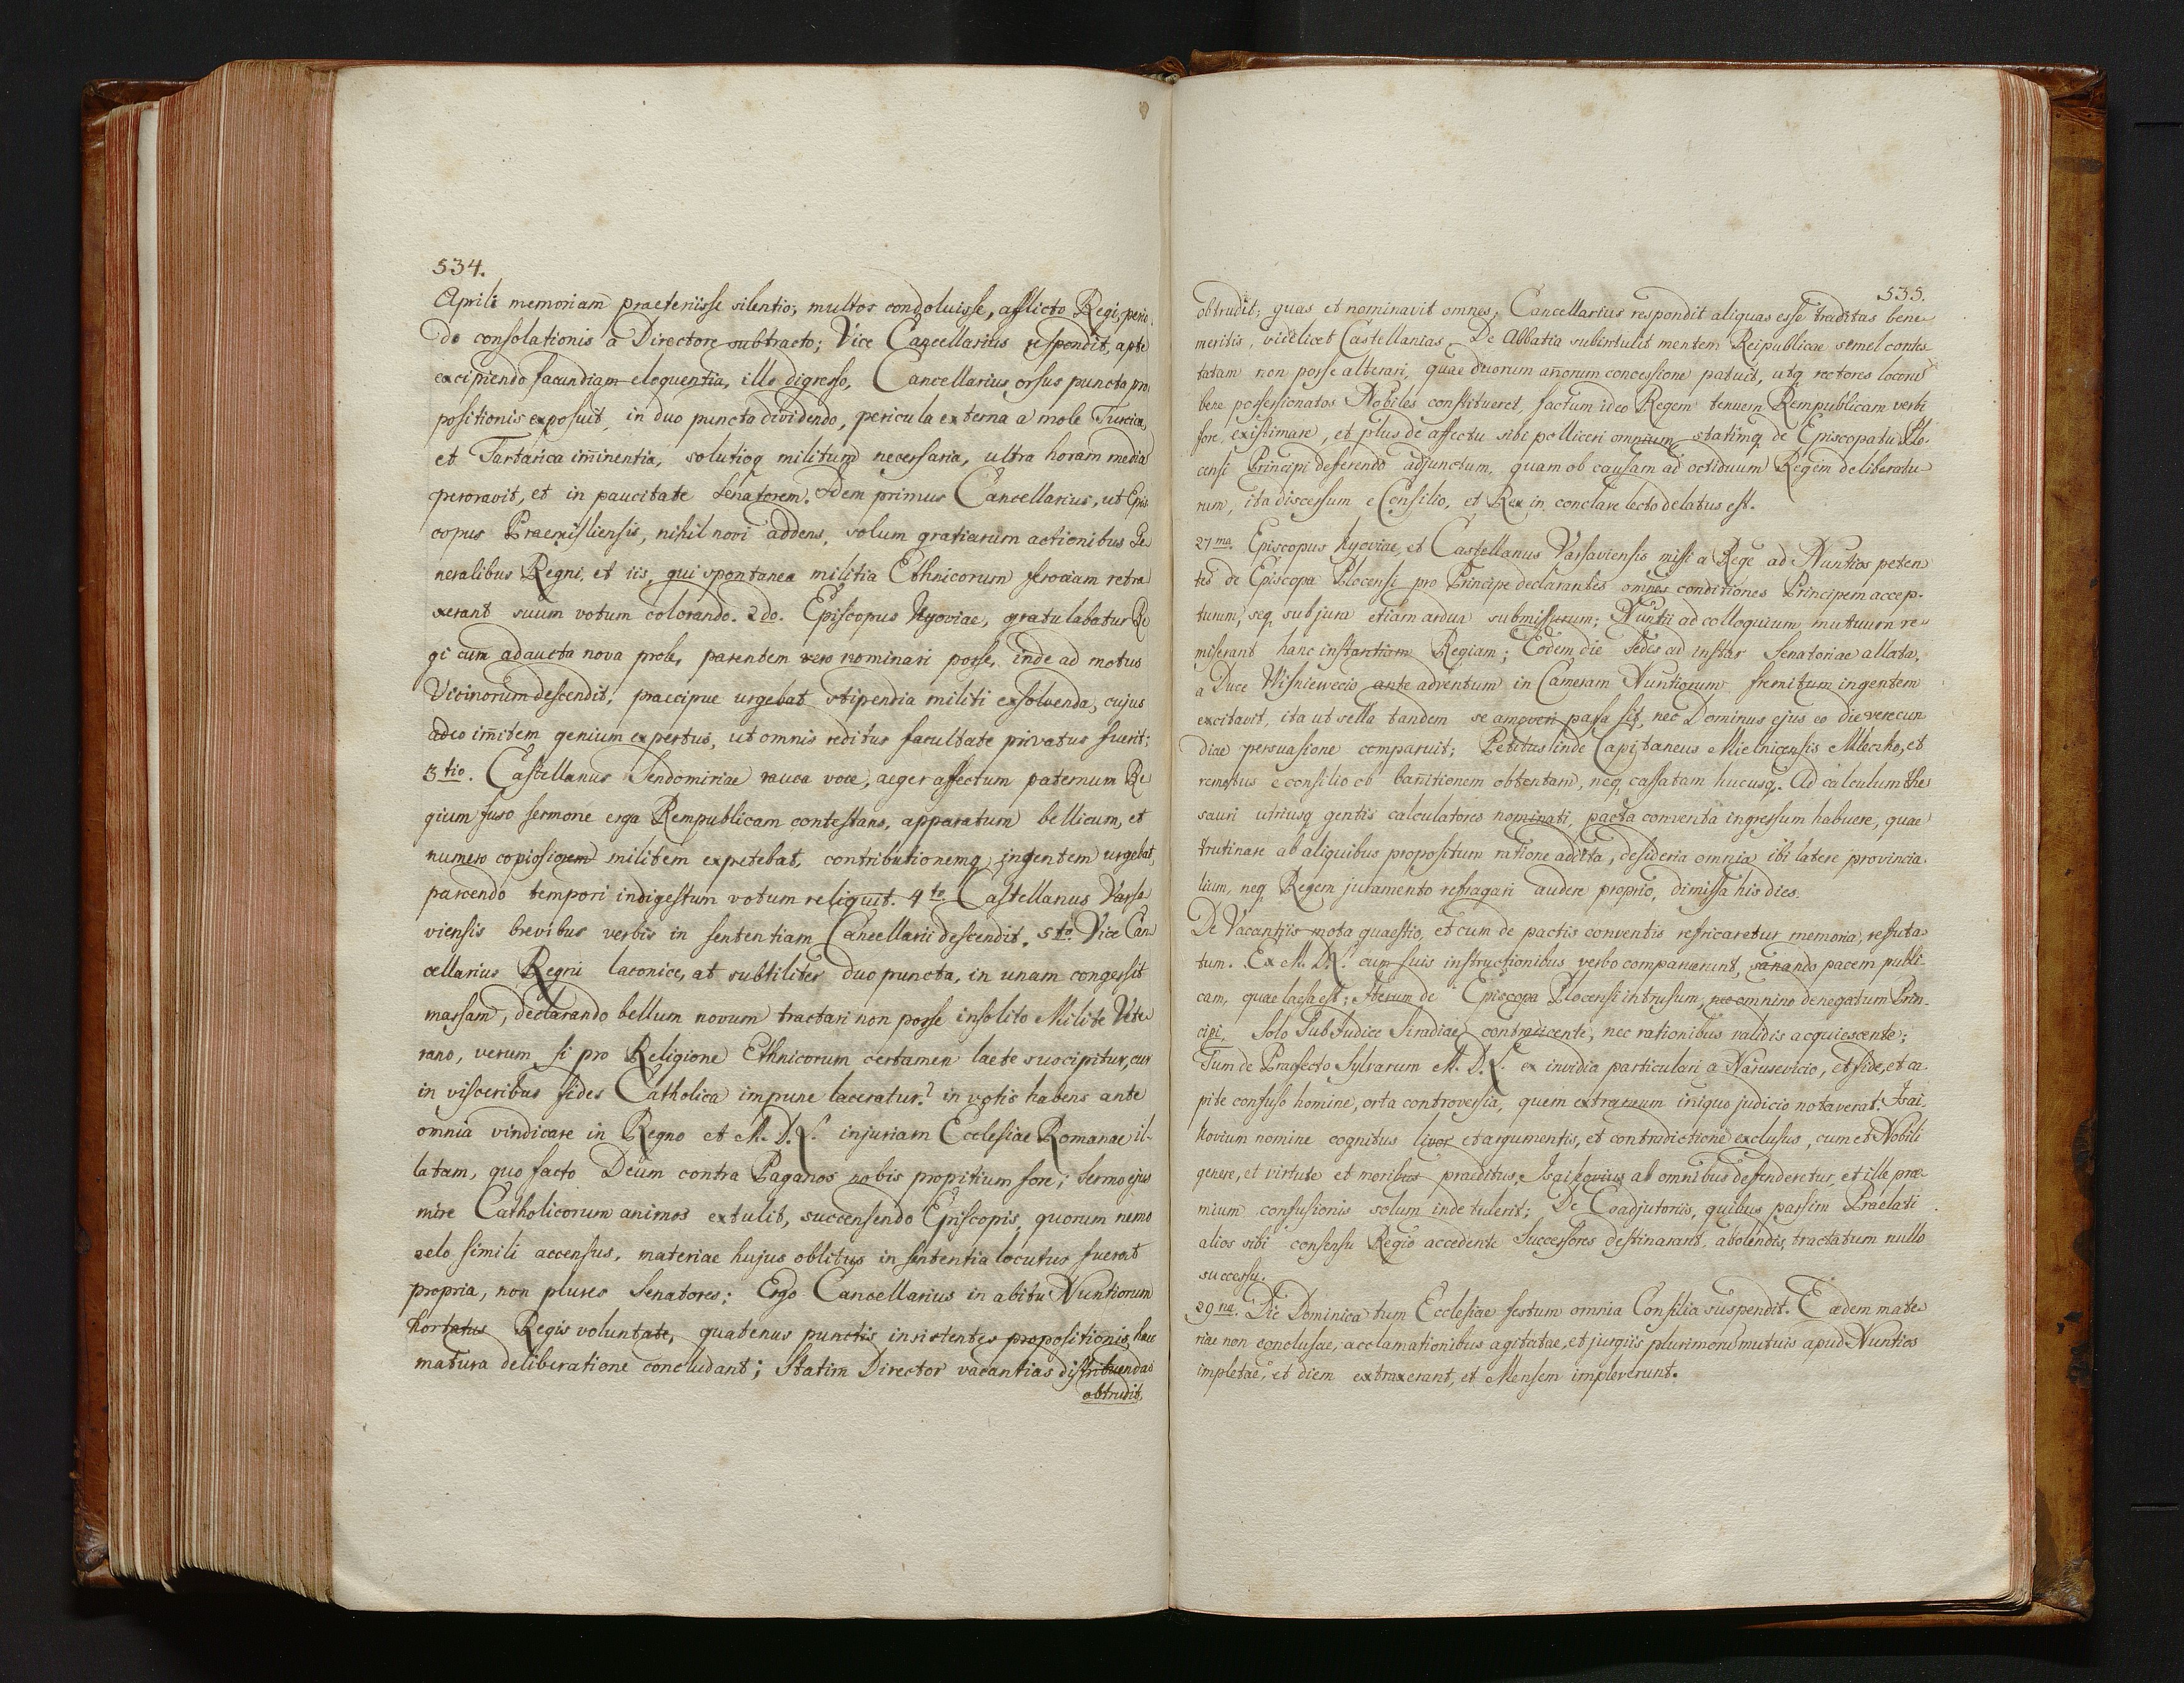 534.
Aprili memoriam praeteriisse silentio; multos condoluisse, afflicto Regi, perio
do consolationis a Directore subtracto; Vice Cancellarius respondit, apte
excipiendo facundiam eloquentia, illo digresso, Cancellarius orsus puncta pro
positionis exposuit, in duo puncta dividendo, pericula externa a mole Turcica,
et Tartarica iminentia, solutioq militum necessaria, ultra horam media
peroravit, et in paucitate Senatorem. Idem primus Cancellarius, ut Epis
copus Praemisliensis, nihil novi addens, solum gratiarum actionibus Ge
neralibus Regni, et iis, qui spontanea militia Ethnicorum ferociam retra
xerant suum votum colorando. 2do. Episcopus Kyoviae, gratulabatur Re
gi cum adaucta nova prole, parentem vero nominari posse, inde ad motus
Vicinorum descendit, praecipue urgebat stipendia militi exsolvenda, cujus
adeo imitem genium expertus, ut omnis reditus facultate privatus fuerit;
3tio. Castellanus Sendomiriae rauca voce, aeger affectum paternum Re
gium fuso sermone erga Rempublicam contestans, apparatum bellicum, et
numero copiosiorem militem expetebat, contributionemq ingentem urgebat,
parcendo tempori indigestum votum reliquit. 4to Castellanus Varsa
viensis brevibus verbis in sententiam Cancellarii descendit. 5to. Vice Can
cellarius Regni laconice, at subtiliter duo puncta, in unam congessit
massam, declarando bellum novum tractari non posse insolito Milite Vete
rano, verum si pro Religione Ethnicorum certamen laete suscipitur, cur
in visceribus fides Catholica impune laceratur? in votis habens ante
omnia vindicare in Regno et M. D. L. injuriam Ecclesiae Romanae il-
latam, quo facto Deum contra Paganos nobis propitium fore; Sermo ejus
mire Catholicorum animos extulit, succensendo Episcopis, quorum nemo
zelo simili accensus, materiae hujus oblitus in sententia locutus fuerat
propria, non plures Senatores; Ergo Cancellarius in abitu Nuntiorum
hortatus Regis voluntate, quatenus punctis insistentes propositionis, hau
matura deliberatione concludant; Statim Director vacantias distribuendas
obtrudit,
535.
obtrudit; quas et nominavit omnes, Cancellarius respondit aliquas esse traditas bene
meritis, videlicet Castellanias, De Abbatia subintulit mentem Reipublicae semel contes
tatam non posse alterari, quae duorum anorum concessione patuit, utq rectores locorum
bene possessionatos Nobiles constitueret, factum ideo Regem tenuem Rempublicam verbi
fore, existimare, et plus de affectu sibi polliceri omnium, statimq de Episcopatu Plo
censi Principi deferendo adjunctum, quam ob causam ad octiduum Regem deliberatu
rum, ita discessum e Consilio, et Rex in conclave lecto delatus est.
27ma. Episcopus Kyoviae, et Castellanus Varsaviensis missi a Rege ad Nuntios peten
tes de Episcopa Plocensi pro Principe declarantes omnes conditiones Principem accep-
turum, seq subjura etiam ardua submissurum; Nuntii ad colloquium mutuum re
miserant hanc instantiam Regiam; Eodem die Sedes ad instar Senatoriae allata,
a Duce Wisniewecio ante adventum in Cameram Nuntiorum fremitum ingentem
excitavit, ita ut sella tandem se amoveri passa sit, nec Dominus ejus eo die verecun
diae persuasione comparuit; Petitus inde Capitaneus Mielnicensis Mleczko, et
remotus e consilio ob banitionem obtentam, neq cassatam hucusq. Ad calculum the
sauri utriusq gentis calculatores nominati, pacta conventa ingressum habuere, quae
trutinare ab aliquibus propositum ratione addita, desideria omnia ibi latere provincia
lium, neq Regem juramento refragari audere proprio, dimissa his dies.
De Vacantiis mota quaestio, et cum de pactis conventis refricaretur memoria, refuta
tum. Ex M. D. L. cum suis instructionibus verbo comparuerunt, sanando pacem publi-
cam, quae laesa est; Iterum de Episcopa Plocensi intrusum, nec omnino denegatum Prin-
cipi, Solo SubJudice Siradiae contradicente, nec rationibus validis acquiescente;
Tum de Praefecto Sylvarum M. D. L. ex invidia particulari a Narusevicio, et fide, et ca-
pite confuso homine, orta controversia, quem extraneum iniquo judicio notaverat. Isai-
kovium nomine cognitus livor et argumentis, et contradictione exclusus, cum et Nobili
genere, et virtute et moribus praeditus, Isaikovius ab omnibus defenderetur, et ille prae
mium confusionis solum inde tulerit; De Coadjutoriis, quibus passim Praelati
alios sibi consensu Regio accedente Successores destinarant, abolendis, tractatum nullo
successu.
29na. Die Dominica tum Ecclesiae festum omnia Consilia suspendit. Eaedem mate
riae non conclusae, acclamationibus agitatae, et jurgiis plurimorum mutuis apud Nuntios
impletae, et diem extraxerant, et Mensem impleverunt.